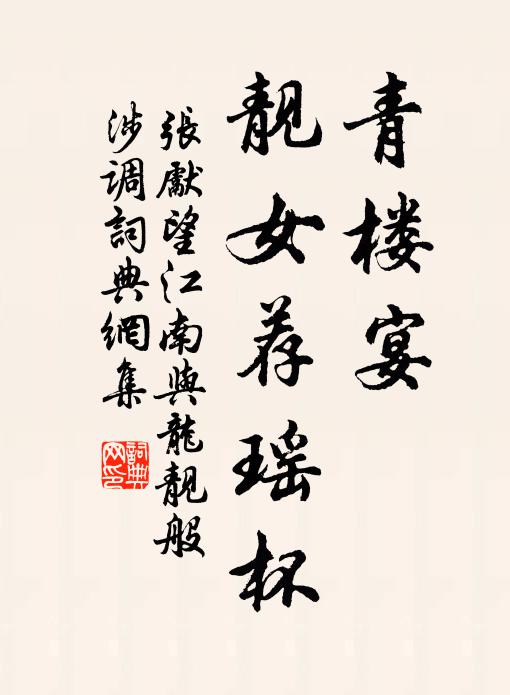 青楼宴
靓女荐瑶杯
張獻望江南與龍靚般
涉调詞典網集
詞典
网印